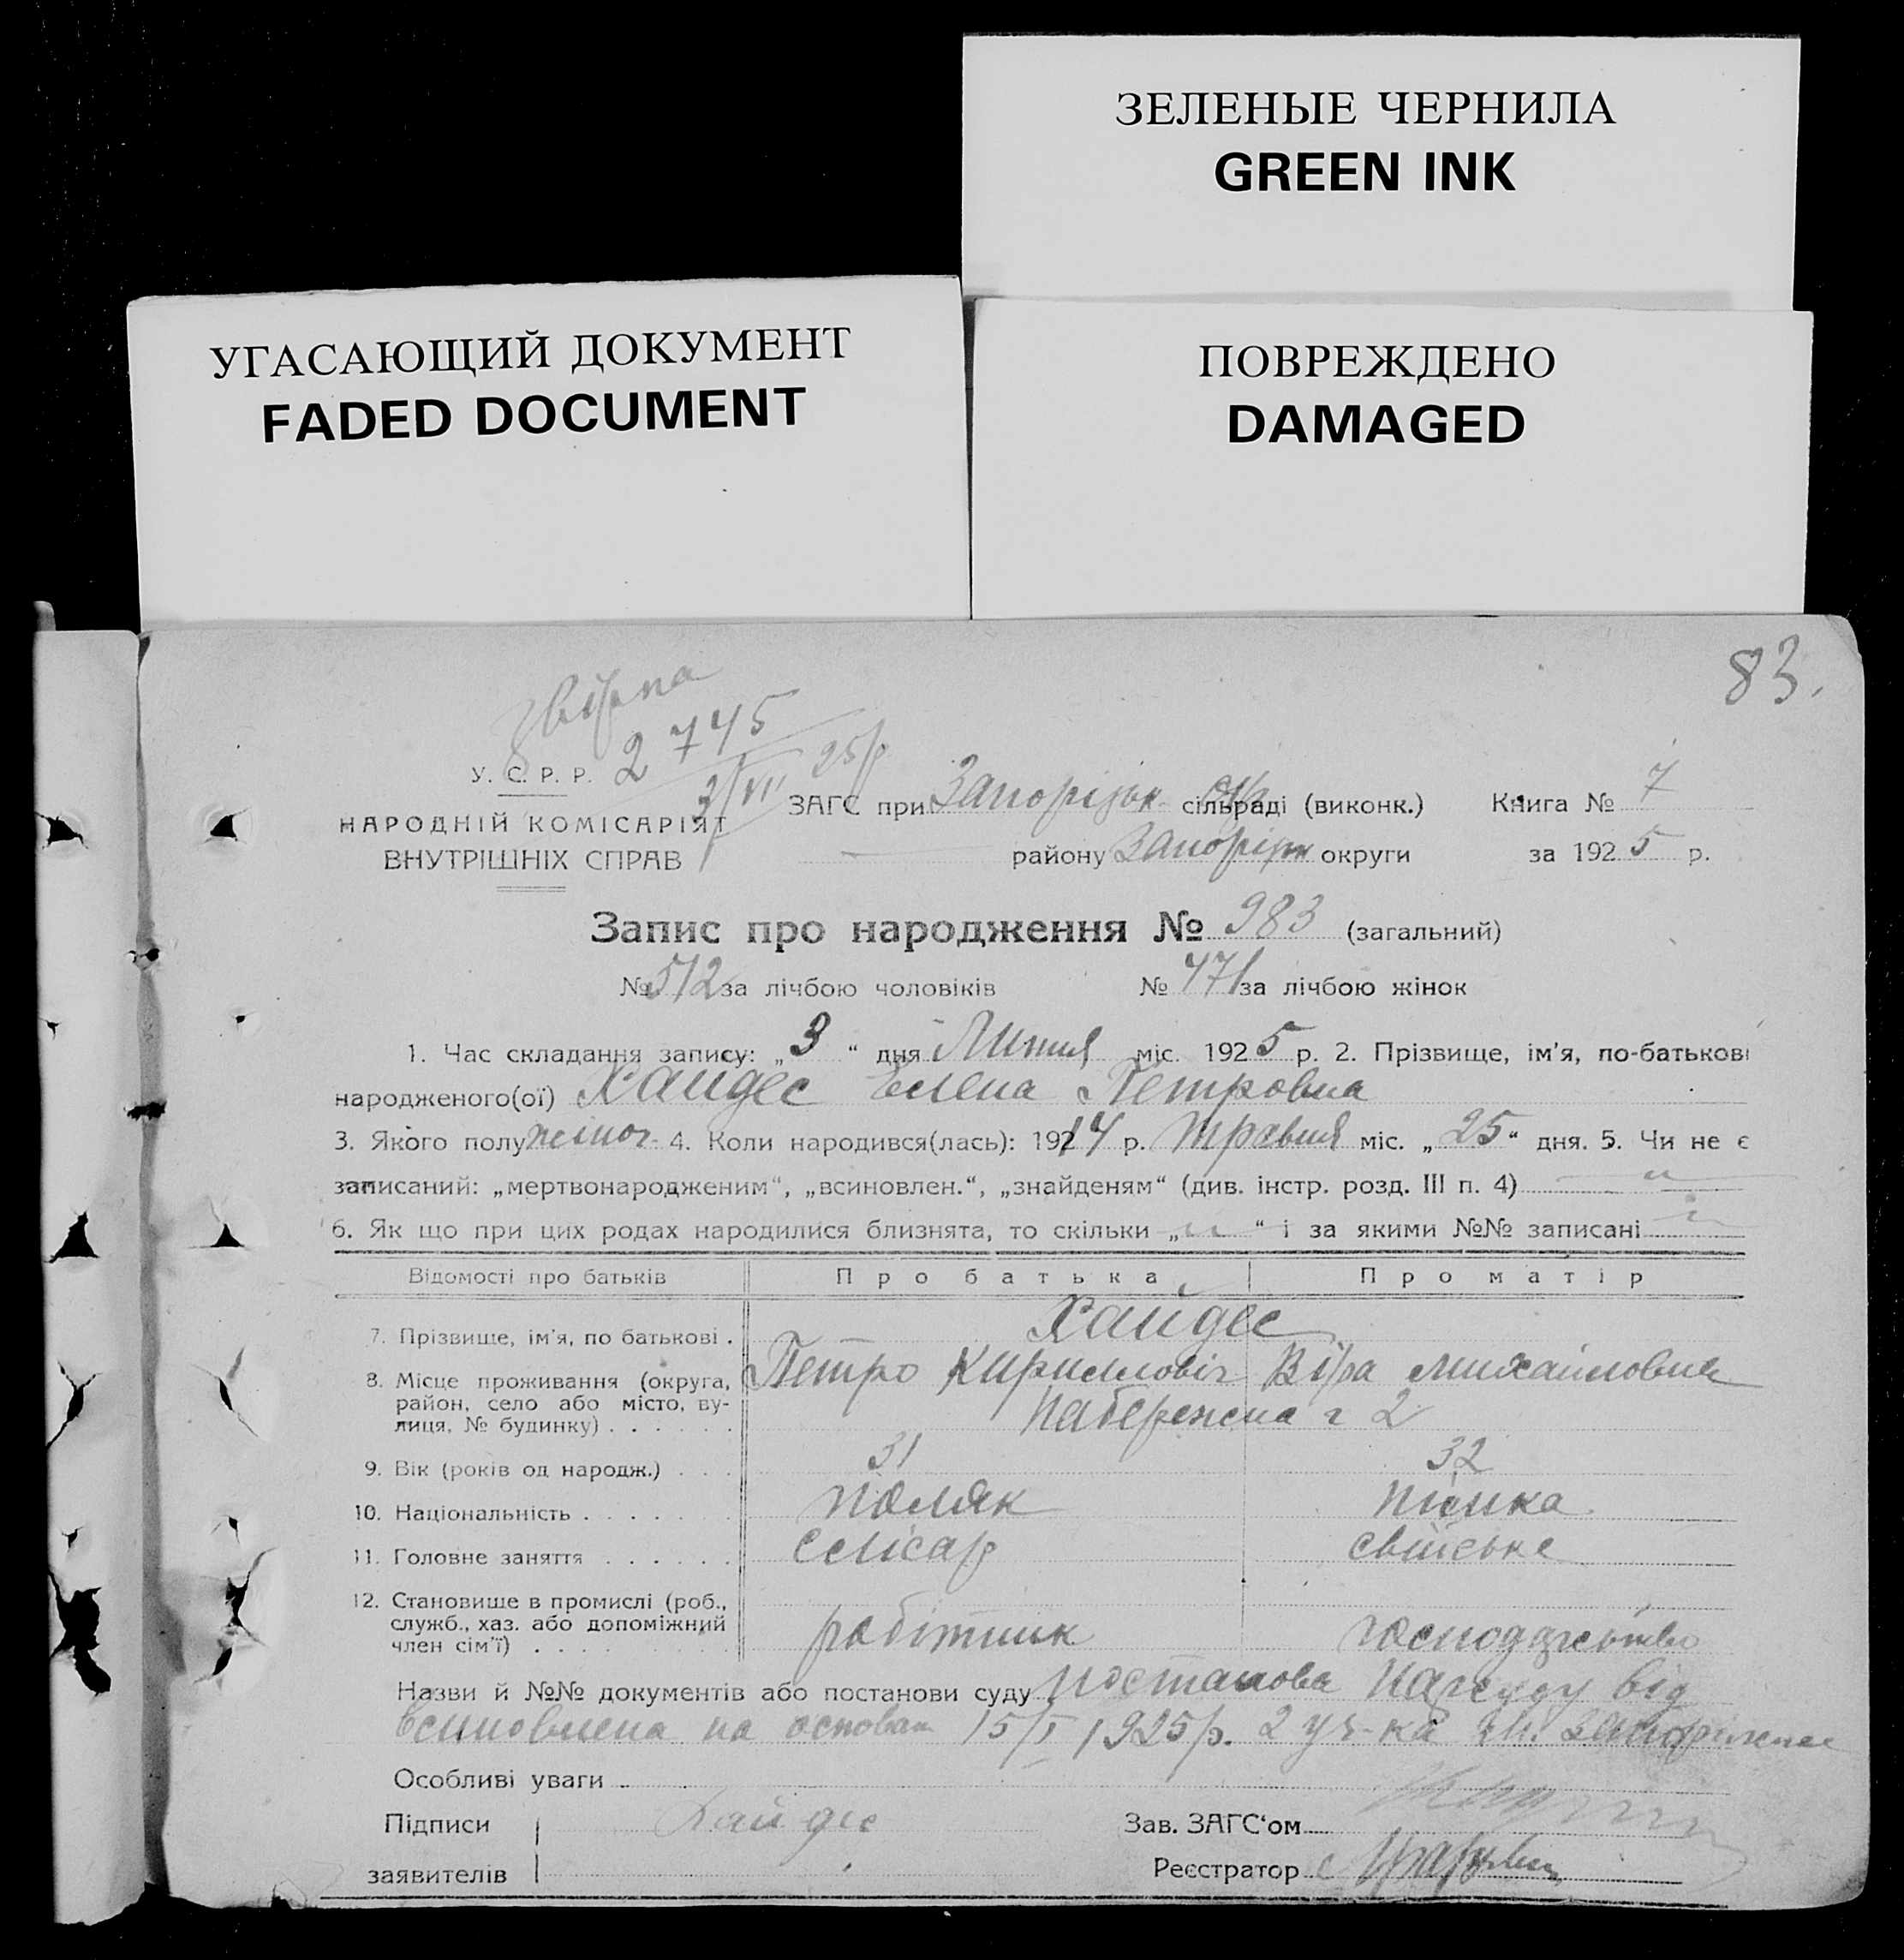 ЗЕЛЕНЫЕ ЧЕРНИЛА
GREEN INK
УГАСАЮЩИЙ ДОКУМЕНТ
FADED DOCUMENT
ПОВРЕЖДЕНО
DAMAGED
83.
2745
3/VII 25р
У. С. Р. Р.
НАРОДНІЙ КОМІСАРІЯТ
ВНУТРІШНІХ СПРАВ
ЗАГС при Запорізьк сільраді (виконк.) Книга № 7
району Запоріж округи за 1925 р.
Запис про народження № 983 (загальний)
№ 512 за лічбою чоловіків № 471 за лічбою жінок
1. Час складання запису: „3“ дня Липня міс. 1925 р. 2. Прізвище, ім'я, по-батькові
народженого(ої) Хайдес Елена Петровна
3. Якого полу жіноч. 4. Коли народився(лась): 1914 р. травня міс. „25“ дня. 5. Чи не є
записаний: „мертвонародженим“, „всиновлен.“, „знайденям“ (див. інстр. розд. III п. 4)
6. Як що при цих родах народилися близнята, то скільки „ “ і за якими №№ записані
Відомості про батьків Про батька Про матір
7. Прізвище, ім'я, по батькові . Хайдес
8. Місце проживання (округа, Петро Кирилловіч Віра Михайловна
район, село або місто, ву- Набережна 2
лиця, № будинку) . . . . . .
9. Вік (років од народж.) . . . 31 32
10. Національність . . . . . поляк німка
11. Головне заняття . . . . . . слісар свійське
12. Становише в промислі (роб.,
служб., хаз. або допоміжний робітник господарство
член сім'ї) . . . .
Назви й №№ документів або постанови суду постанова Нарсуду від
всиновлена на основан 15/I 1925р. 2 уч-ка
Особливі уваги
Підписи Хайдес Зав. ЗАГС‘ом
заявителів Реєстратор